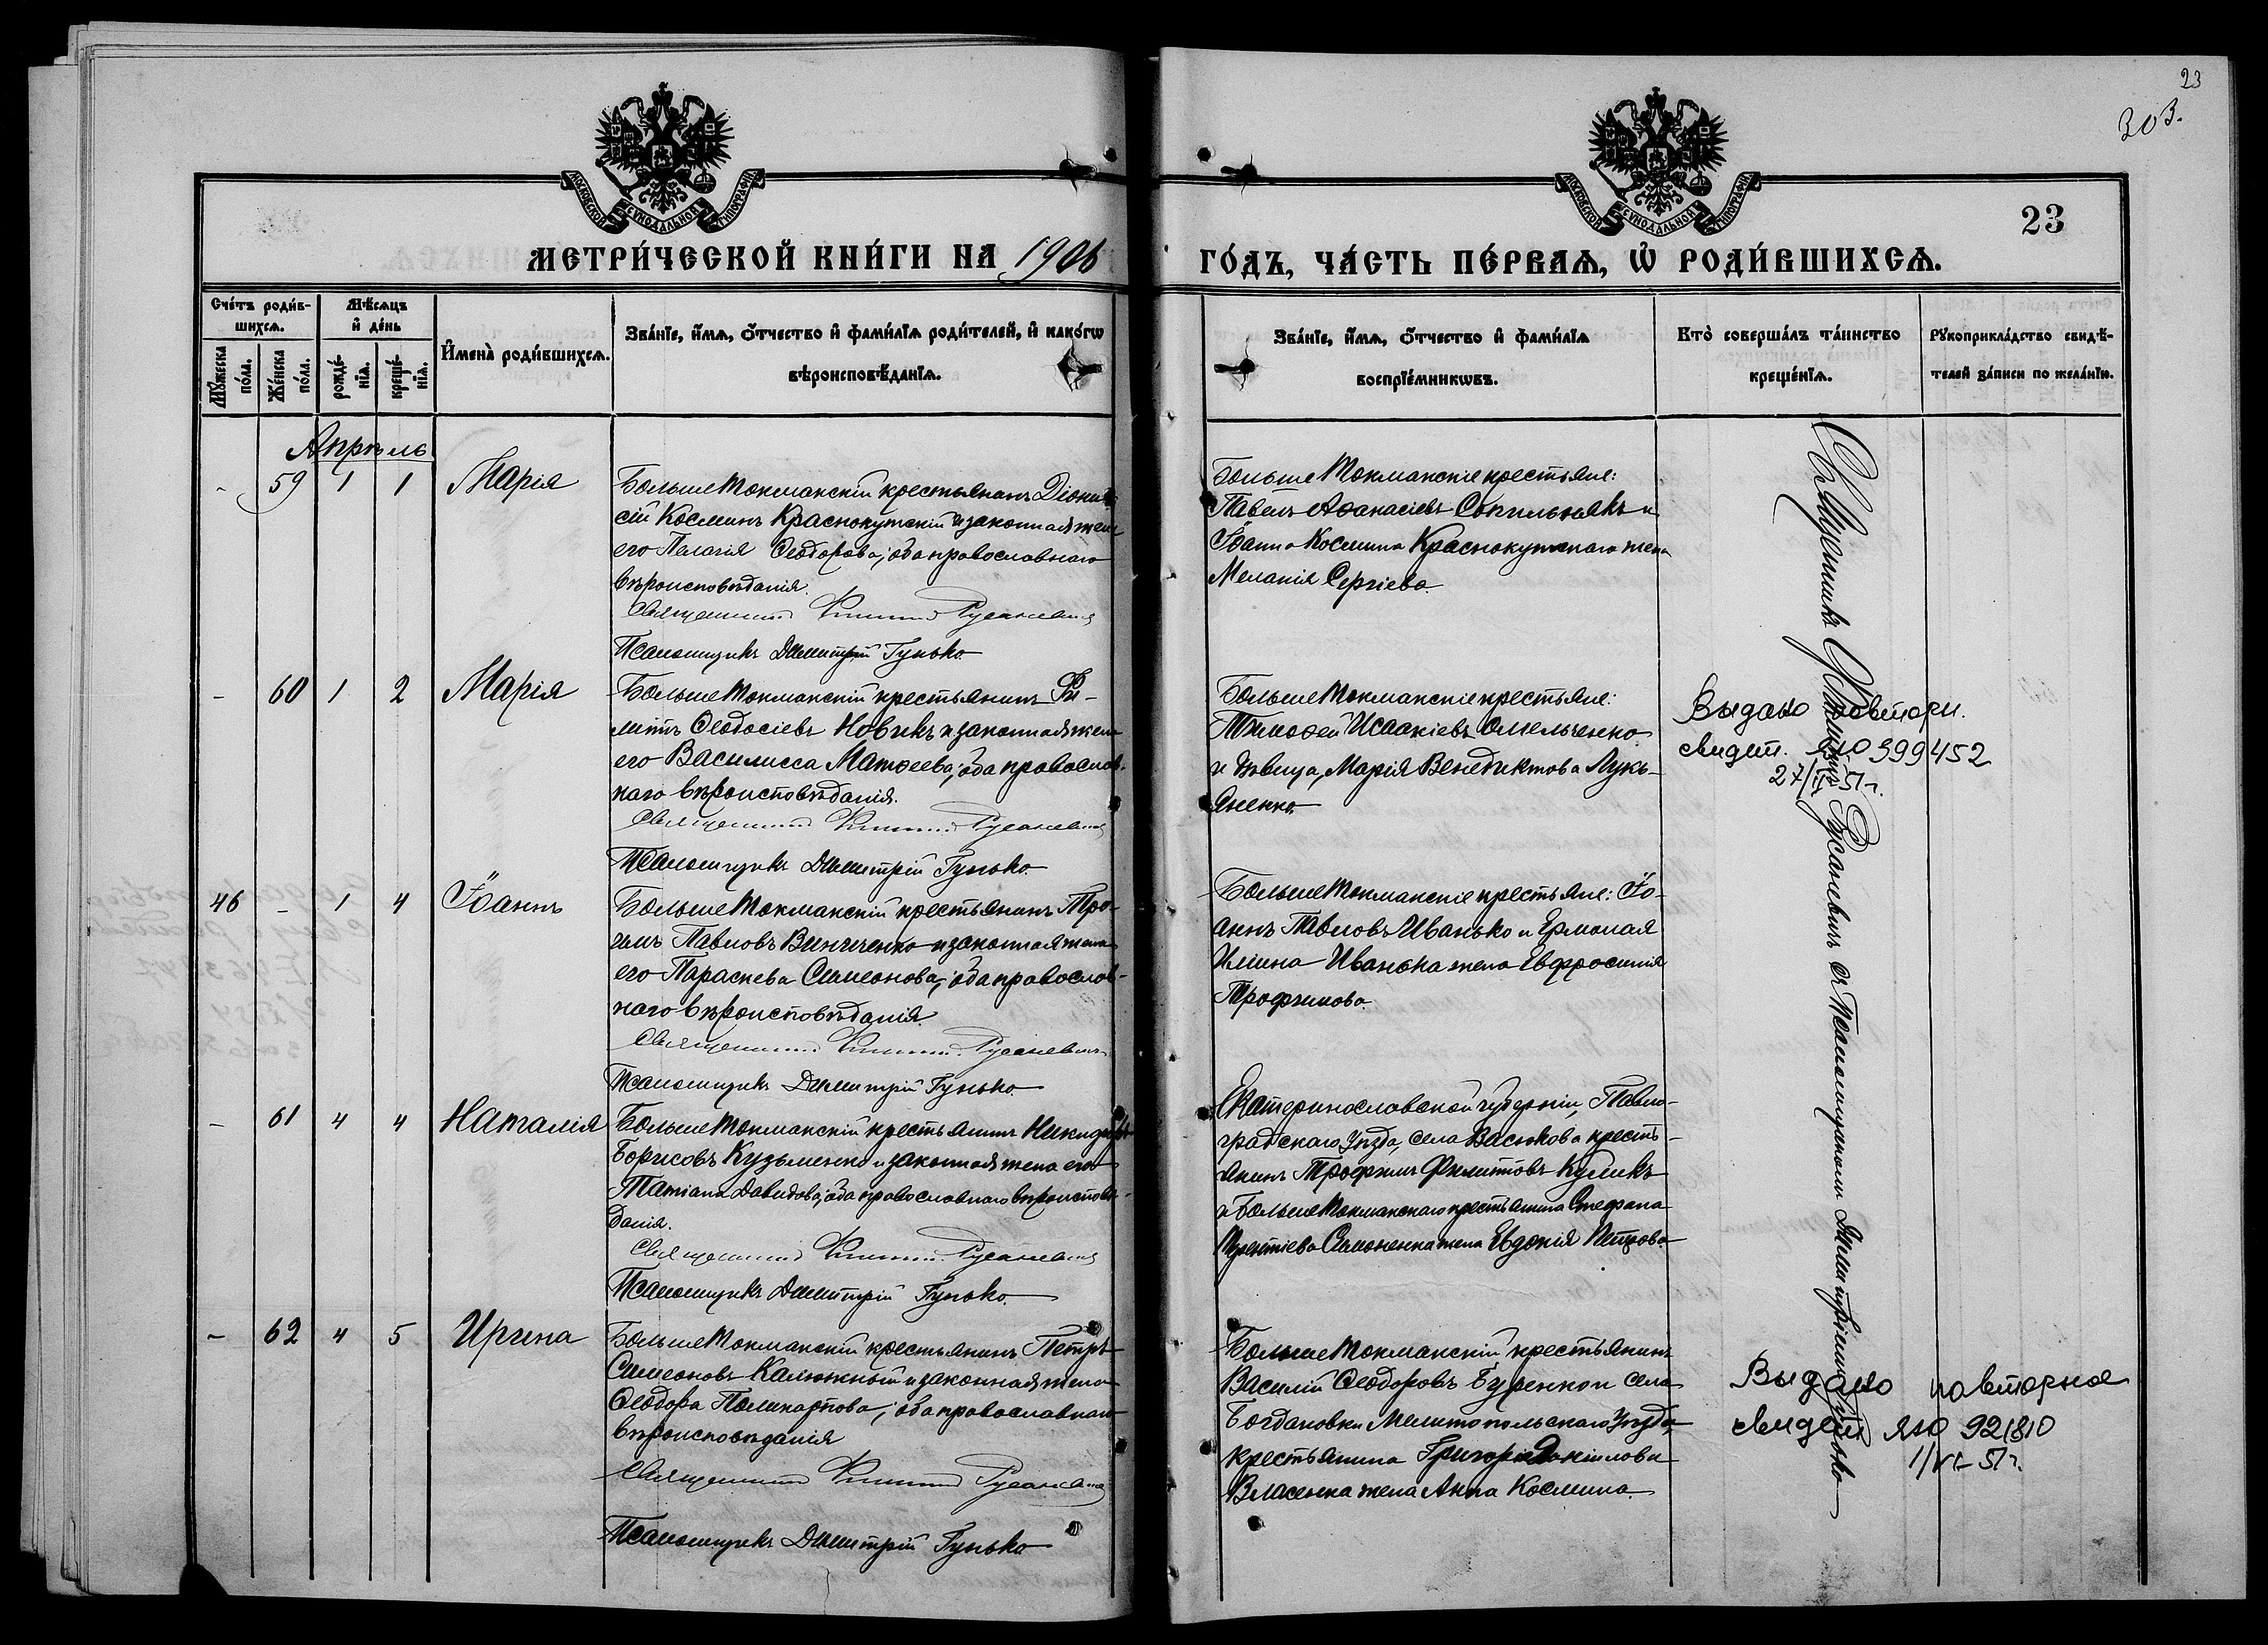 23
303.
МОСКОВСКОЙ СѴНОДАЛЬНОЙ ТИПОГРАФІИ
МОСКОВСКОЙ СѴНОДАЛЬНОЙ ТИПОГРАФІИ
23
МЕТРИ́ЧЕСКОЙ КНИ́ГИ НА 1906
ГО́ДЪ, ЧА́СТЬ ПЕ́РВАѦ, Ѡ҆ РОДИ́ВШИХСѦ.
Сче́тъ роди́в-
шихсѧ.
Мꙋ́жеска
по́ла.
Же́нска
по́ла.
Мѣ́сѧцъ
и҆ де́нь
рожде́-
нїѧ.
креще́-
нїѧ.
И҆мена̀ роди́вшихсѧ.
Зва́нїе, и҆́мѧ, ѻ҆́тчество и҆ фами́лїѧ роди́телей, и҆ како́гѡ
вѣроисповѣ́данїѧ.
Зва́нїе, и҆́мѧ, ѻ҆́тчество и҆ фами́лїѧ
воспрїе́мникѡвъ.
Кто̀ соверша́лъ та́инство
креще́нїѧ.
Рꙋкоприкла́дство свидѣ́-
телей за́писи по жела́нїю.
Апрѣль
- 59 1 1 Марія
БольшеТокмакскій крестьянинъ Діони-
сій Косминъ Краснокутскій и законная жена
его Пелагія Ѳеодорова, оба православнаго
вѣроисповѣданія.
Священникъ Русаневичъ
Псаломщикъ Димитрій Гунько.
БольшеТокмакскіе крестьяне:
Павелъ Аѳанасіевъ Сопильнякъ и
Іоанна Космина Краснокутскаго жена
Меланія Сергіева.
- 60 1 2 Марія
БольшеТокмакскій крестьянинъ Фи-
липпъ Ѳеодосіевъ Новикъ и законная жена
его Василисса Матѳеева, оба православ-
наго вѣроисповѣданія.
Священникъ Русаневичъ
Псаломщикъ Димитрій Гунько.
БольшеТокмакскіе крестьяне:
Тимоѳей Исаакіевъ Омельченко
и дѣвица, Марія Венедиктова Лукь-
яненко.
Выдано повторн.
свидет. ЯЮ 399452
27/II-51 г.
46 - 1 4 Іоаннъ
БольшеТокмакскій крестьянинъ Тро-
имъ Павловъ Винниченко и законная жена
его Параскева Симеонова, оба православ-
наго вѣроисповѣданія.
Священникъ Русаневичъ
Псаломщикъ Димитрій Гунько.
БольшеТокмакскіе крестьяне: Іо-
аннъ Павловъ Иванько и Ермолая
Иліина Иванька жена Евфросинія
Трофимова.
- 61 4 4 Наталія
БольшеТокмакскій крестьянинъ Никифоръ
Борисовъ Кузьменко и законная жена его
Татіана Давидова, оба православнаго вѣроисповѣ-
данія.
Священникъ Русаневичъ
Псаломщикъ Димитрій Гунько.
Екатеринославской губерніи, Павло-
градскаго уѣзда, села Васюкова кресть-
янинъ Трофимъ Филипповъ Куликъ
и БольшеТокмакскаго крестьянина Стефана
Симоненка жена Евдокія Петрова.
- 62 4 5 Ирина
БольшеТокмакскій крестьянинъ Петръ
Симеоновъ Калюжный и законная жена
Ѳеодора Поликарпова, оба православнаго
вѣроисповѣданія
Священникъ Русаневичъ
Псаломщикъ Димитрій Гунько
БольшеТокмакскій крестьянинъ
Василій Ѳеодоровъ Буренко и села
Богдановки Мелитопольскаго уѣзда,
крестьянина Григорія Даніилова
Власенка жена Анна Космина.
Выдано повторное
свидет ЯЮ 921810
1/VI-51 г.
Священникъ Русаневичъ съ Псаломщикомъ Димитріемъ Гунько